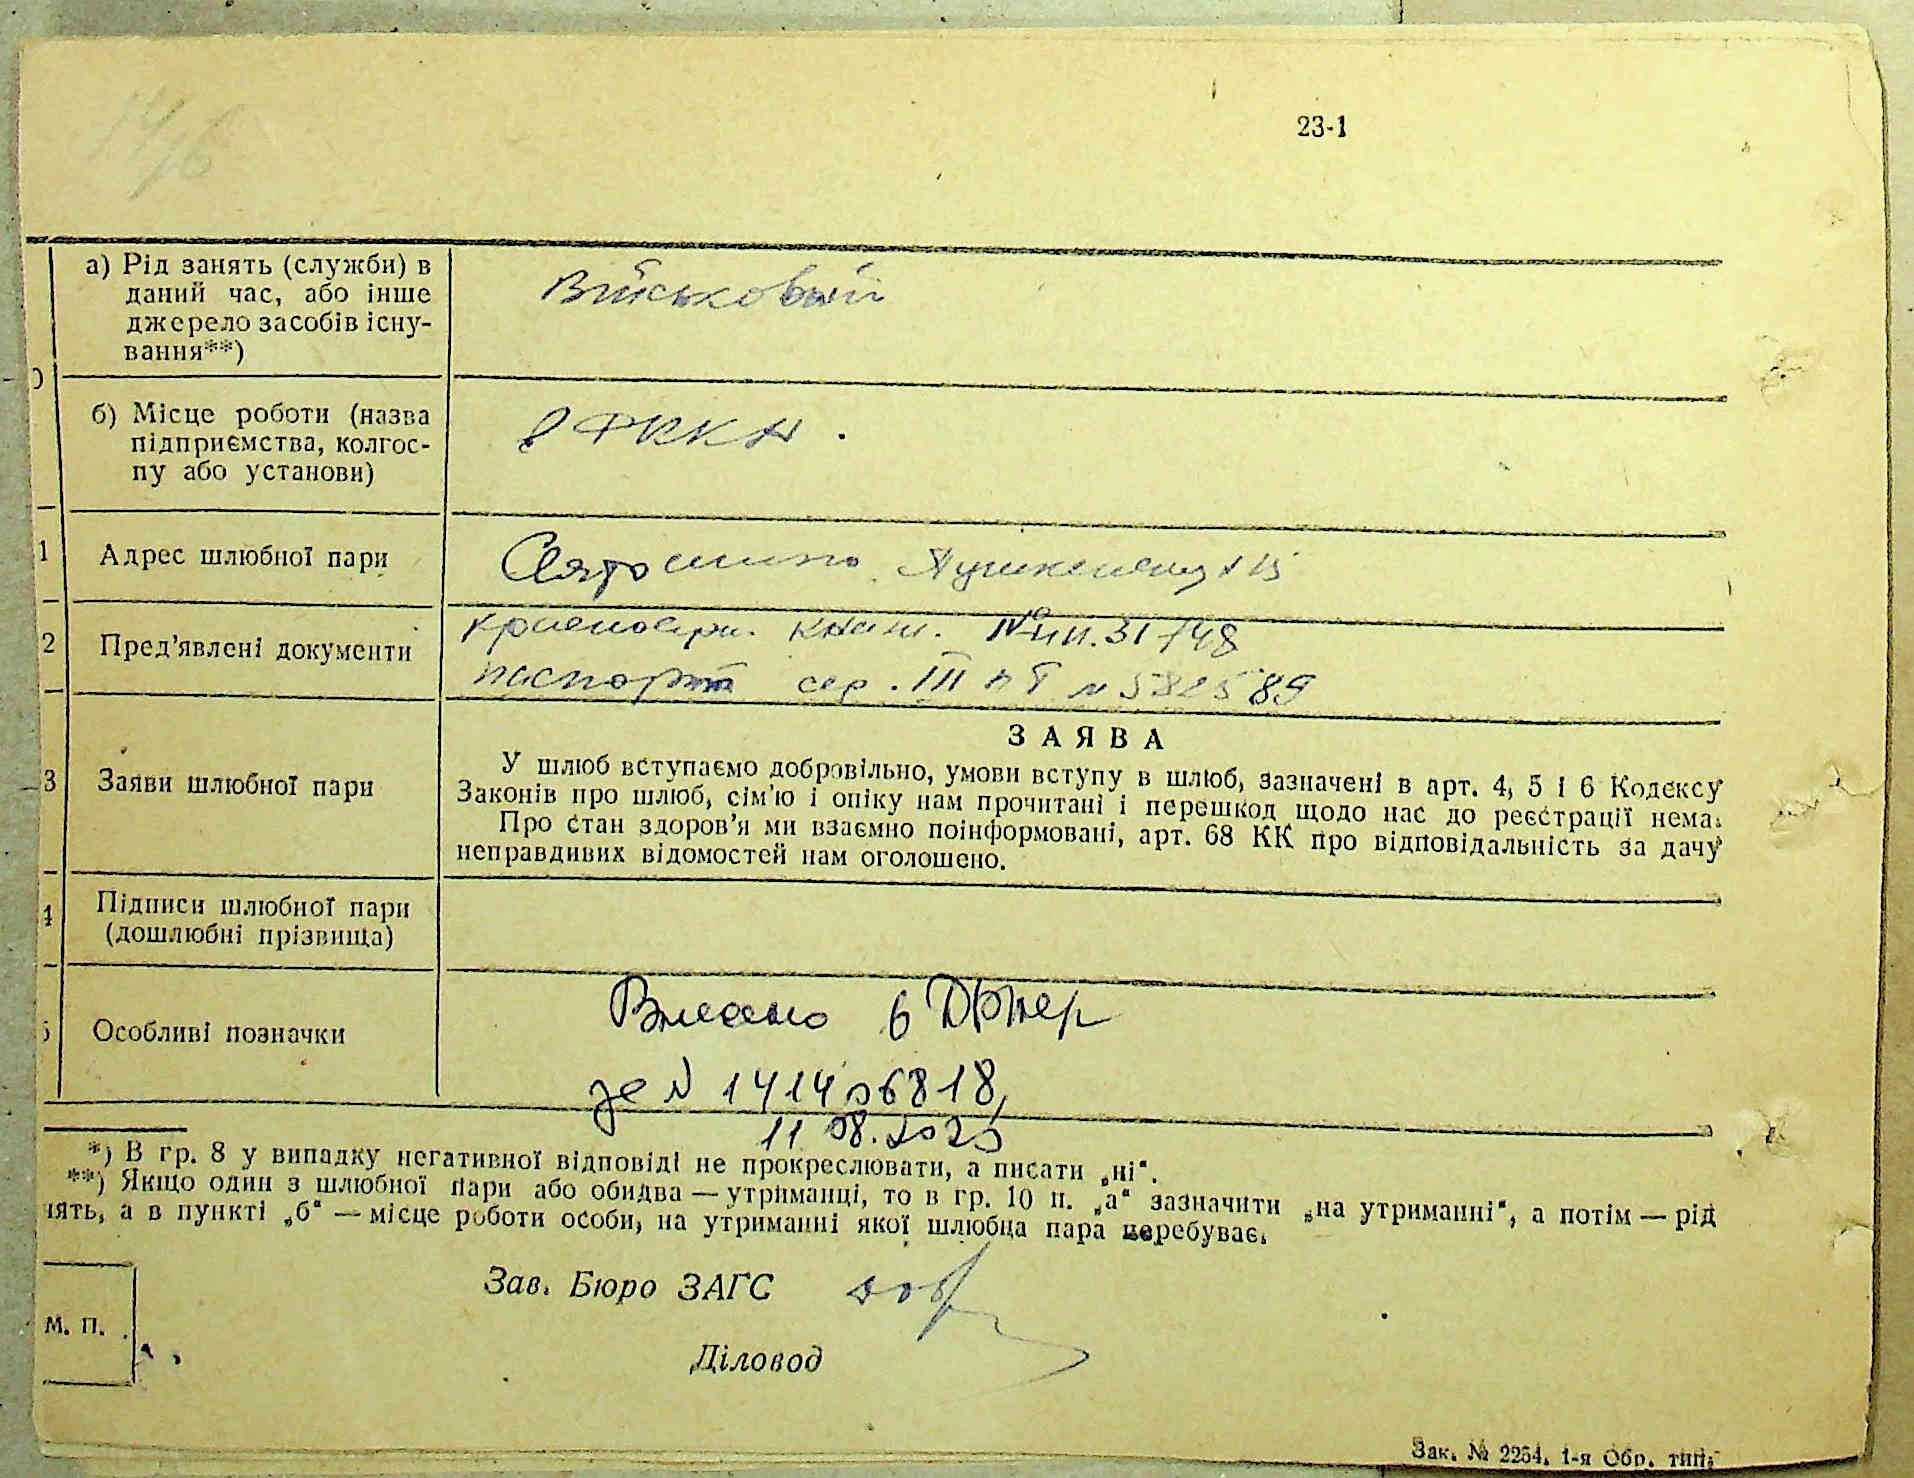 23-1
а) Рід занять (служби) в
даний час, або інше
джерело засобів існу-
вання**)
Військовий
б) Місце роботи (назва
підприємства, колгос-
пу або установи)
1
Адрес шлюбної пари
Святошино
15
2
Пред’явлені документи
книж. 31748
паспорт сер. III № 582589
3
Заяви шлюбної пари
ЗАЯВА
У шлюб вступаємо добровільно, умови вступу в шлюб, зазначені в арт. 4, 5 і 6 Кодексу
Законів про шлюб, сім’ю і опіку нам прочитані і перешкод щодо нас до реєстрації нема.
Про стан здоров’я ми взаємно поінформовані, арт. 68 КК про відповідальність за дачу
неправдивих відомостей нам оголошено.
4
Підписи шлюбної пари
(дошлюбні прізвища)
5
Особливі позначки
Внесено в
за N 141406818,
11.08.2023
*) В гр. 8 у випадку негативної відповіді не прокреслювати, а писати „ні“.
**) Якщо один з шлюбної пари або обидва — утриманці, то в гр. 10 п. „а“ зазначити „на утриманні“, а потім — рід
нять, а в пункті „б“ — місце роботи особи, на утриманні якої шлюбна пара перебуває.
Зав. Бюро ЗАГС
М. П.
Діловод
Зак. № 2254. 1-я Обр. тип.